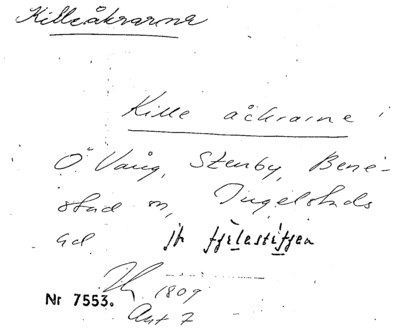 Killeåkrarna
Kille åckrarne
Ö. Vång, Stenby, Bene-
stad sn, Ingelstads
hd
Nr 7553. 1809
Akt 7